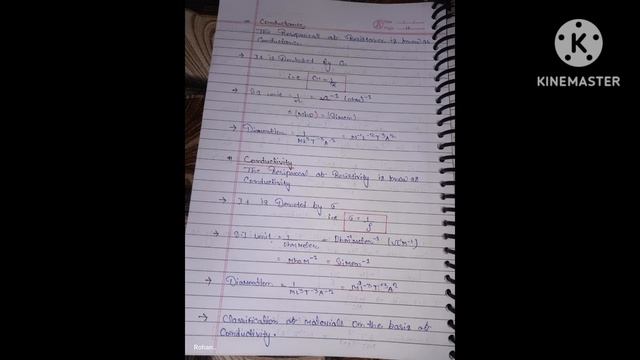 Conductance
The Reciprocal ob Resistance is know as
Conductance
→ It is Denoted By G
i.e G = 1/R
→ SI unit = 1/Ω = Ω⁻¹ (ohm)⁻¹
= (Mho) = (Simen)
→ Diamention = 1/ML²T⁻³A⁻² = M⁻¹L⁻²T³A²
* Conductivity
The Reciprocal ob Resistivity is know as
Conductivity
→ It is Denoted by σ
i.e σ = 1/ρ
→ SI unit = 1/Ohm meter = Ohm⁻¹ meter⁻¹ (Ω⁻¹m⁻¹)
= Mho M⁻¹ = Simen⁻¹
→ Diamention = 1/ML³T⁻³A⁻²
→ Classification ob materials on the basis ob
Conductivity.
Rohan
K
KINEMASTER